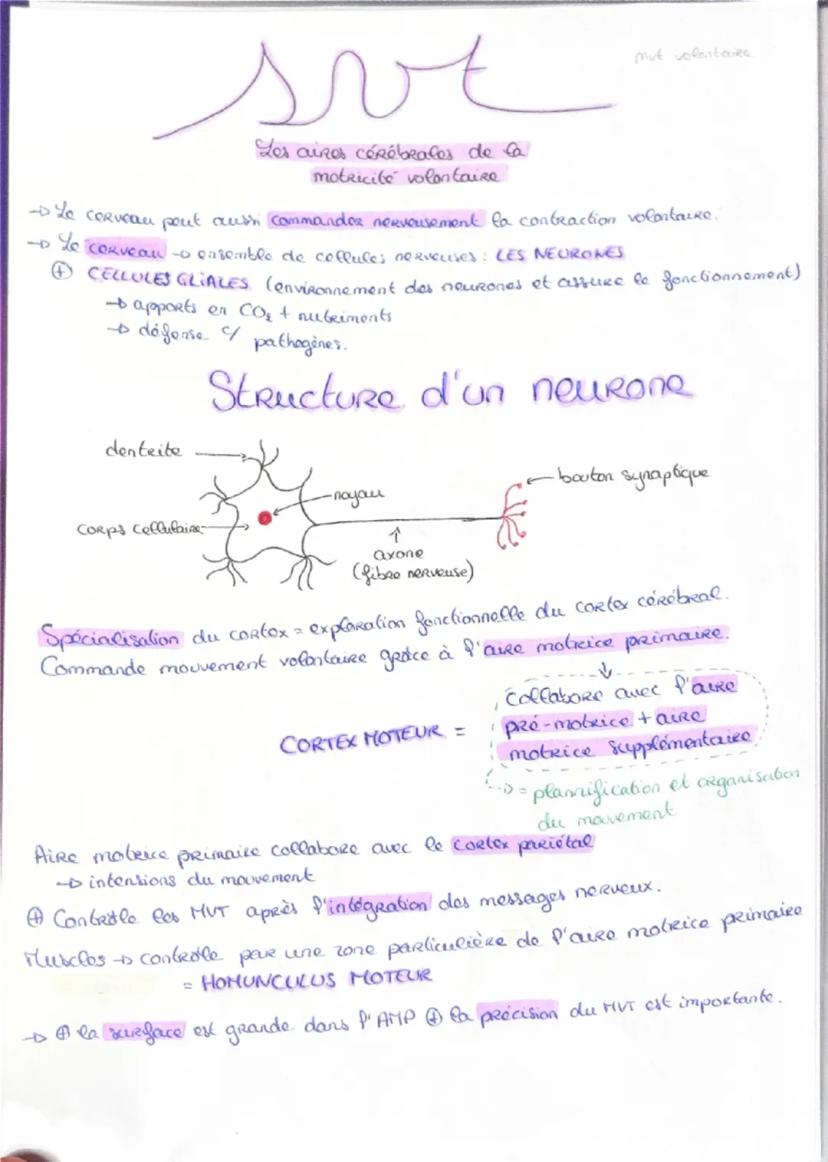 mvt volontaire
svt
Les aires cérébrales de la
motricité volontaire
→ Le cerveau peut aussi commander nerveusement la contraction volontaire.
→ Le cerveau → ensemble de cellules nerveuses : LES NEURONES
⊕ CELLULES GLIALES (environnement des neurones et assure le fonctionnement)
→ apports en CO₂ + nutriments
→ défense c/ pathogènes.
Structure d'un neurone
dentrite
bouton synaptique
noyau
corps cellulaire
axone
(fibre nerveuse)
Spécialisation du cortex = exploration fonctionnelle du cortex cérébral.
Commande mouvement volontaire grâce à l'aire motrice primaire.
↓
Collabore avec l'aire
CORTEX MOTEUR = pré-motrice + aire
motrice supplémentaire
→ = plannification et organisation
du mouvement
Aire motrice primaire collabore avec le cortex pariétal
→ intensions du mouvement
⊕ Contrôle les MVT après l'intégration des messages nerveux.
Muscles → contrôle par une zone particulière de l'aire motrice primaire
= HOMUNCULUS MOTEUR
→ ⊕ la surface est grande dans l'AMP ⊕ la précision du MVT est importante.